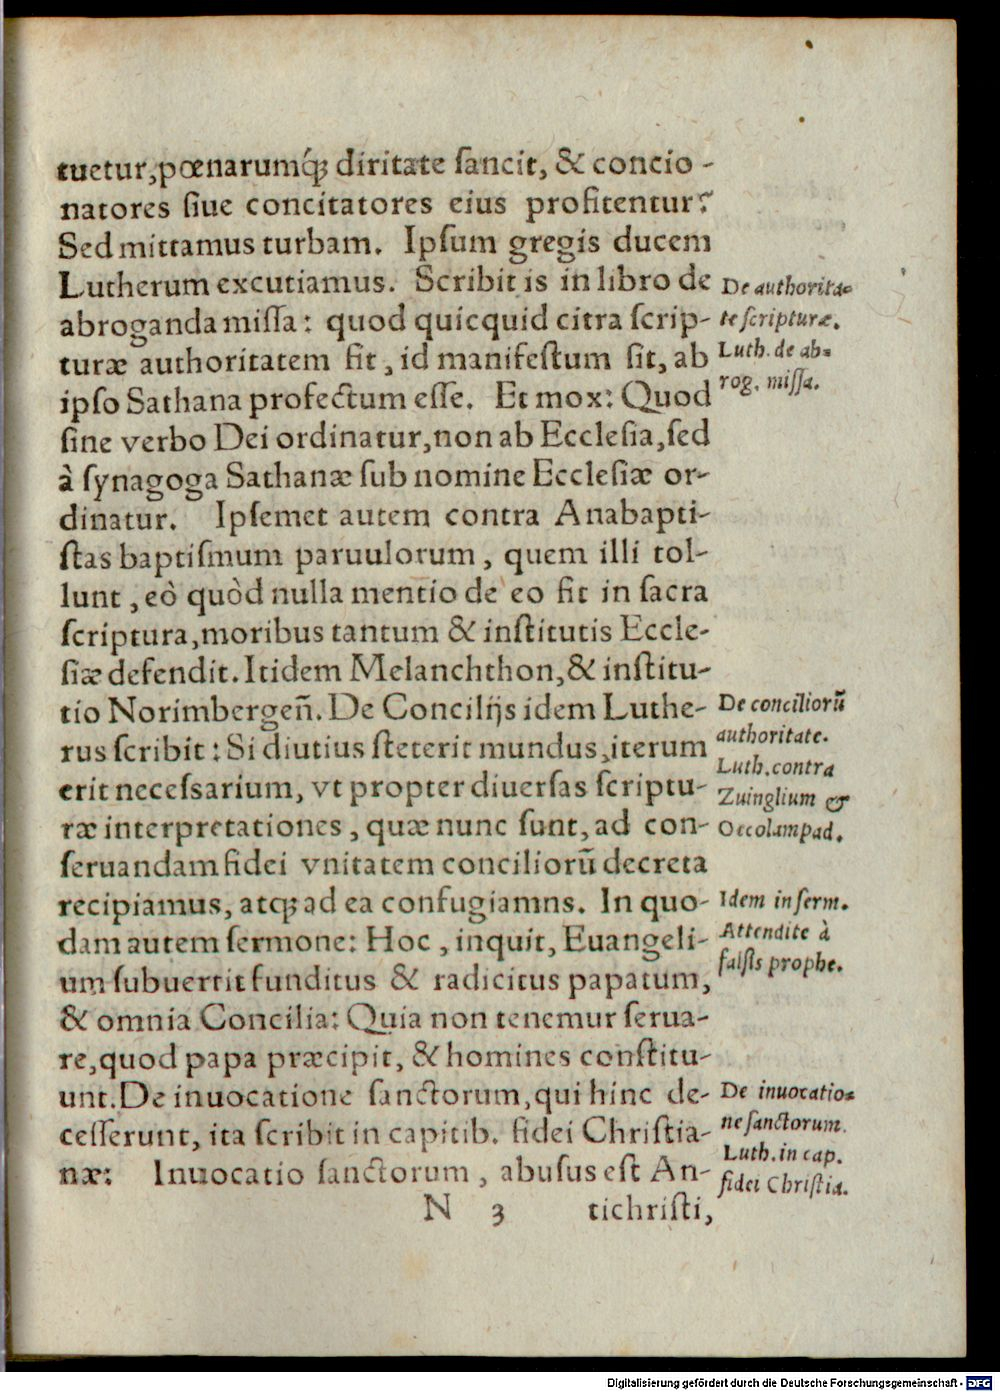 tuetur, pœnarumq́; diritate ſancit, & concio-
natores ſiue concitatores eius profitentur?
Sed mittamus turbam. Ipſum gregis ducem
Lutherum excutiamus. Scribit is in libro de
abroganda miſſa: quod quicquid citra ſcrip-
turæ authoritatem fit, id manifeſtum ſit, ab
ipſo Sathana profectum eſſe. Et mox: Quod
ſine verbo Dei ordinatur, non ab Eccleſia, ſed
à ſynagoga Sathanæ ſub nomine Eccleſiæ or-
dinatur. Ipſemet autem contra Anabapti-
ſtas baptiſmum paruulorum, quem illi tol-
lunt, eò quòd nulla mentio de eo fit in ſacra
ſcriptura, moribus tantum & inſtitutis Eccle-
ſiæ defendit. Itidem Melanchthon, & inſtitu-
tio Norimbergeñ. De Concilijs idem Luthe-
rus ſcribit: Si diutius ſteterit mundus, iterum
erit neceſsarium, vt propter diuerſas ſcriptu-
ræ interpretationes, quæ nunc ſunt, ad con-
ſeruandam fidei vnitatem conciliorũ decreta
recipiamus, atq; ad ea confugiamns. In quo-
dam autem ſermone: Hoc, inquit, Euangeli-
um ſubuertit funditus & radicitus papatum,
& omnia Concilia: Quia non tenemur ſerua-
re, quod papa præcipit, & homines conſtitu-
unt. De inuocatione ſanctorum, qui hinc de-
ceſſerunt, ita ſcribit in capitib. fidei Chriſtia-
næ: Inuocatio ſanctorum, abuſus eſt An-
N 3 tichriſti,
De authorita-
te ſcripturæ.
Luth. de ab-
rog. miſſa.
De conciliorũ
authoritate.
Luth. contra
Zuinglium &
Oecolampad.
Idem in ſerm.
Attendite à
falſis prophe.
De inuocatio-
ne ſanctorum.
Luth. in cap.
fidei Chriſtia.
Digitalisierung gefördert durch die Deutsche Forschungsgemeinschaft - DFG